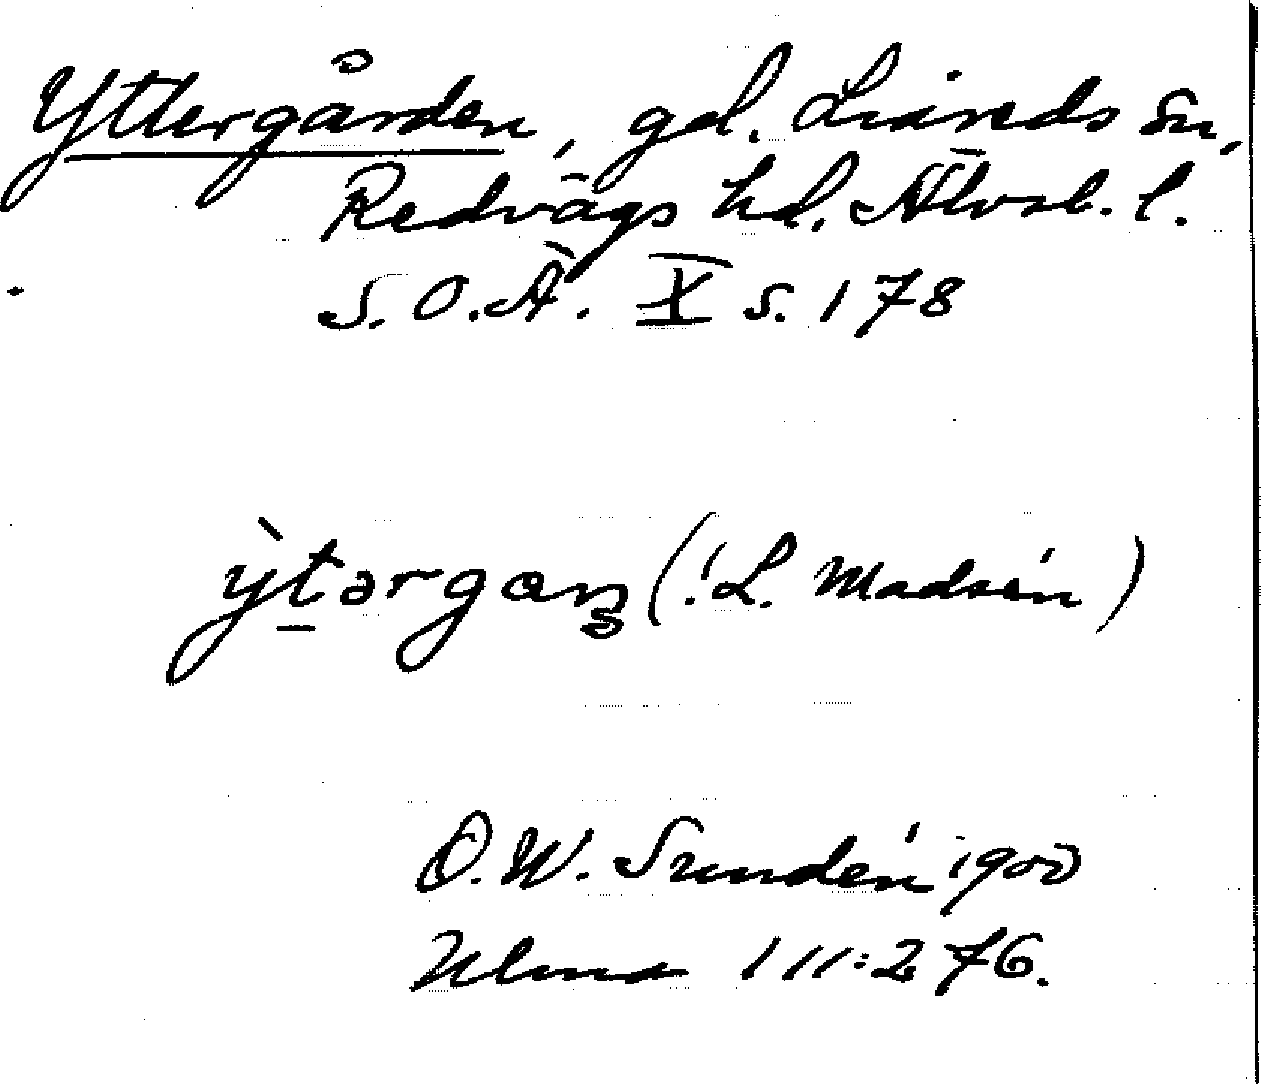 Yttergården, gd. Liareds sn,
Redvägs hd. Älvsb. l.
S.O.Ä. X s. 178
ỳtərgaṇ (! L. Madsén)
O. W. Sundén 1900
Ulma 111:276.